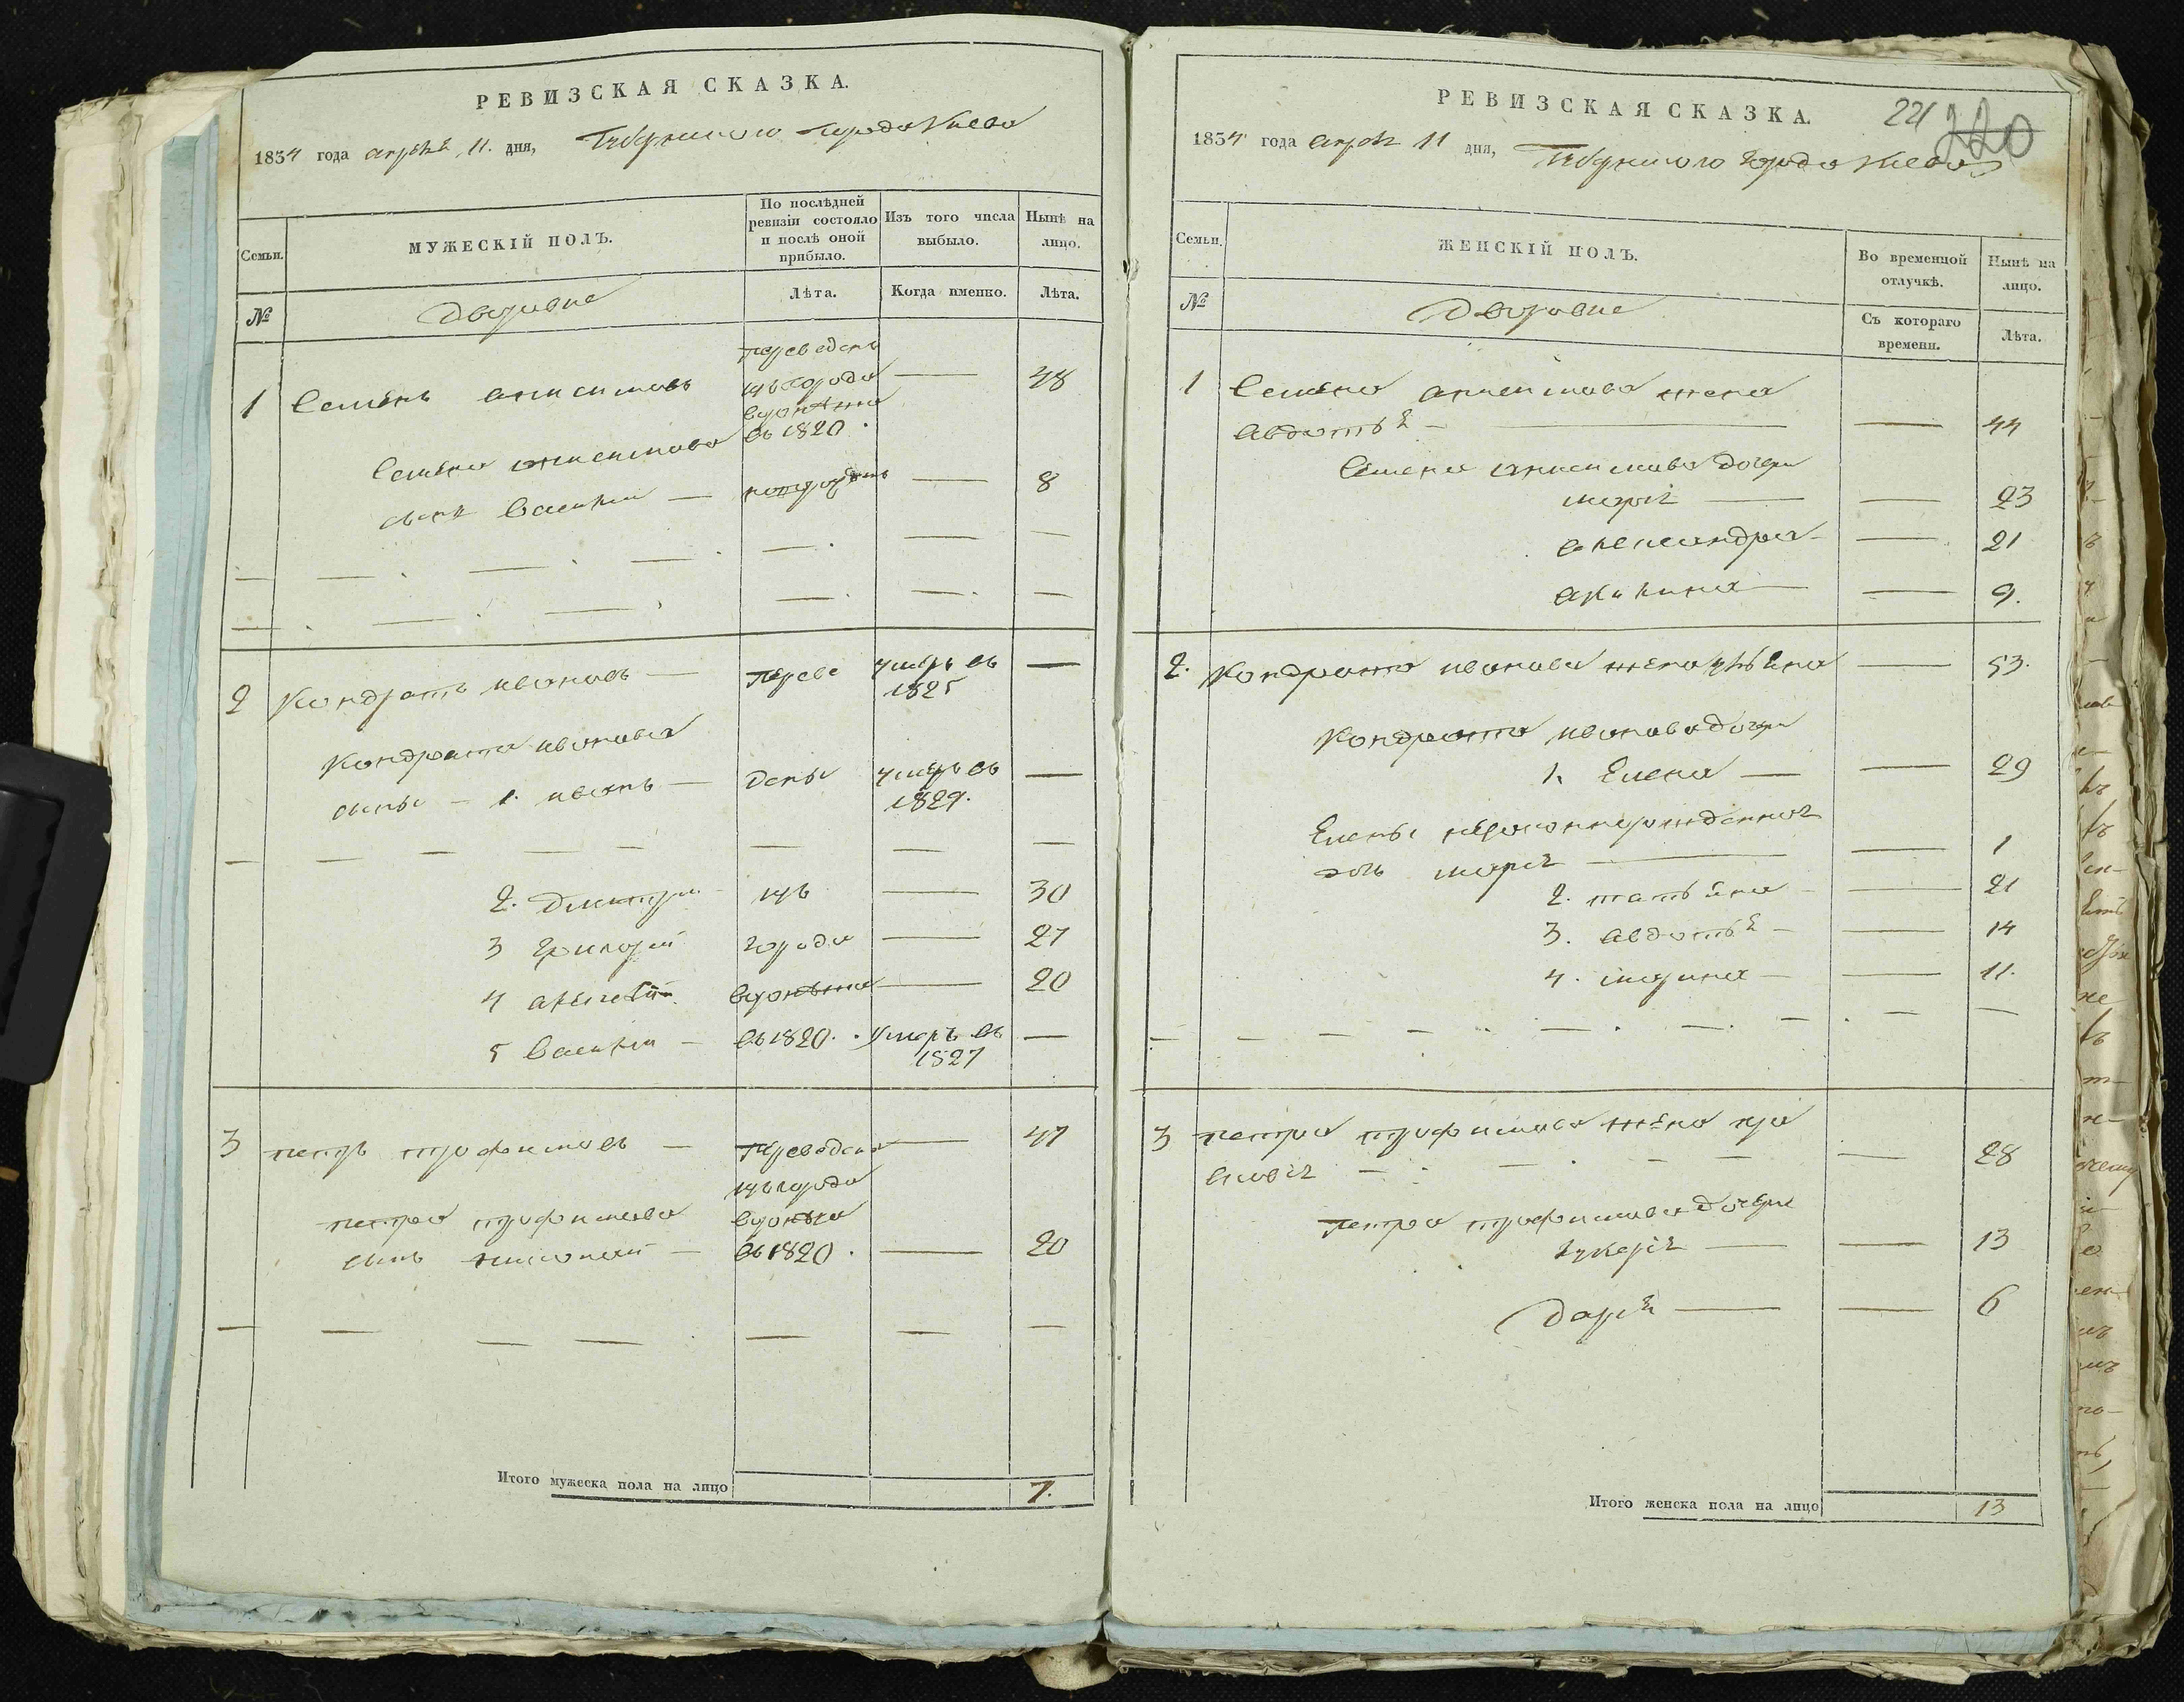 РЕВИЗСКАЯ СКАЗКА.
1834 года апрѣля 11. дня, Губернскаго города Киева
Семьи.
МУЖЕСКІЙ ПОЛЪ.
По послѣдней
ревизіи состояло
и послѣ оной
прибыло.
Изъ того числа
выбыло.
Нынѣ на
лицо.
№
Дворовые
Лѣта.
Когда именно.
Лѣта.
1 Семенъ анисимовъ
переведенъ
изъ города
въ 1820.
— 48
Семена анисимова
сынъ Василій — — 8
2 Кондратъ ивановъ — переве умеръ въ 1825 —
Кондрата иванова
сыны – 1. иванъ — дены умеръ въ 1829. —
2. Дмитри изъ — 30
3 григорій города — 27
4 — 20
5 Василій — въ 1820. умеръ въ 1827 —
3 петръ трофимовъ — переведены — 47
изъ города
петра трофимова
сынъ — въ 1820. — 20
Итого мужеска пола на лицо 7.
РЕВИЗСКАЯ СКАЗКА.
221 220
1834 года апрѣля 11 дня, Губернскаго города Киева
Семьи.
ЖЕНСКІЙ ПОЛЪ.
Во временной
отлучкѣ.
Нынѣ на
лицо.
№
Дворовые
Съ котораго
времени.
Лѣта.
1 Семена анисимова жена
авдотья — — 44
Семена анисимова дочери
марья — — 23
александра — — 21
акилина — — 9.
2. Кондрата иванова жена — 53.
Кондрата иванова дочери
1. Елена — — 29
Елены незаконнорожденная
дочь марья — — 1
2. татьяна — — 21
3. авдотья — — 14
4. марина — — 11.
3 петра трофимова жена пра
сковья — — 28
петра трофимова дочери
лукерья — — 13
дарья — — 6
Итого женска пола на лицо 13